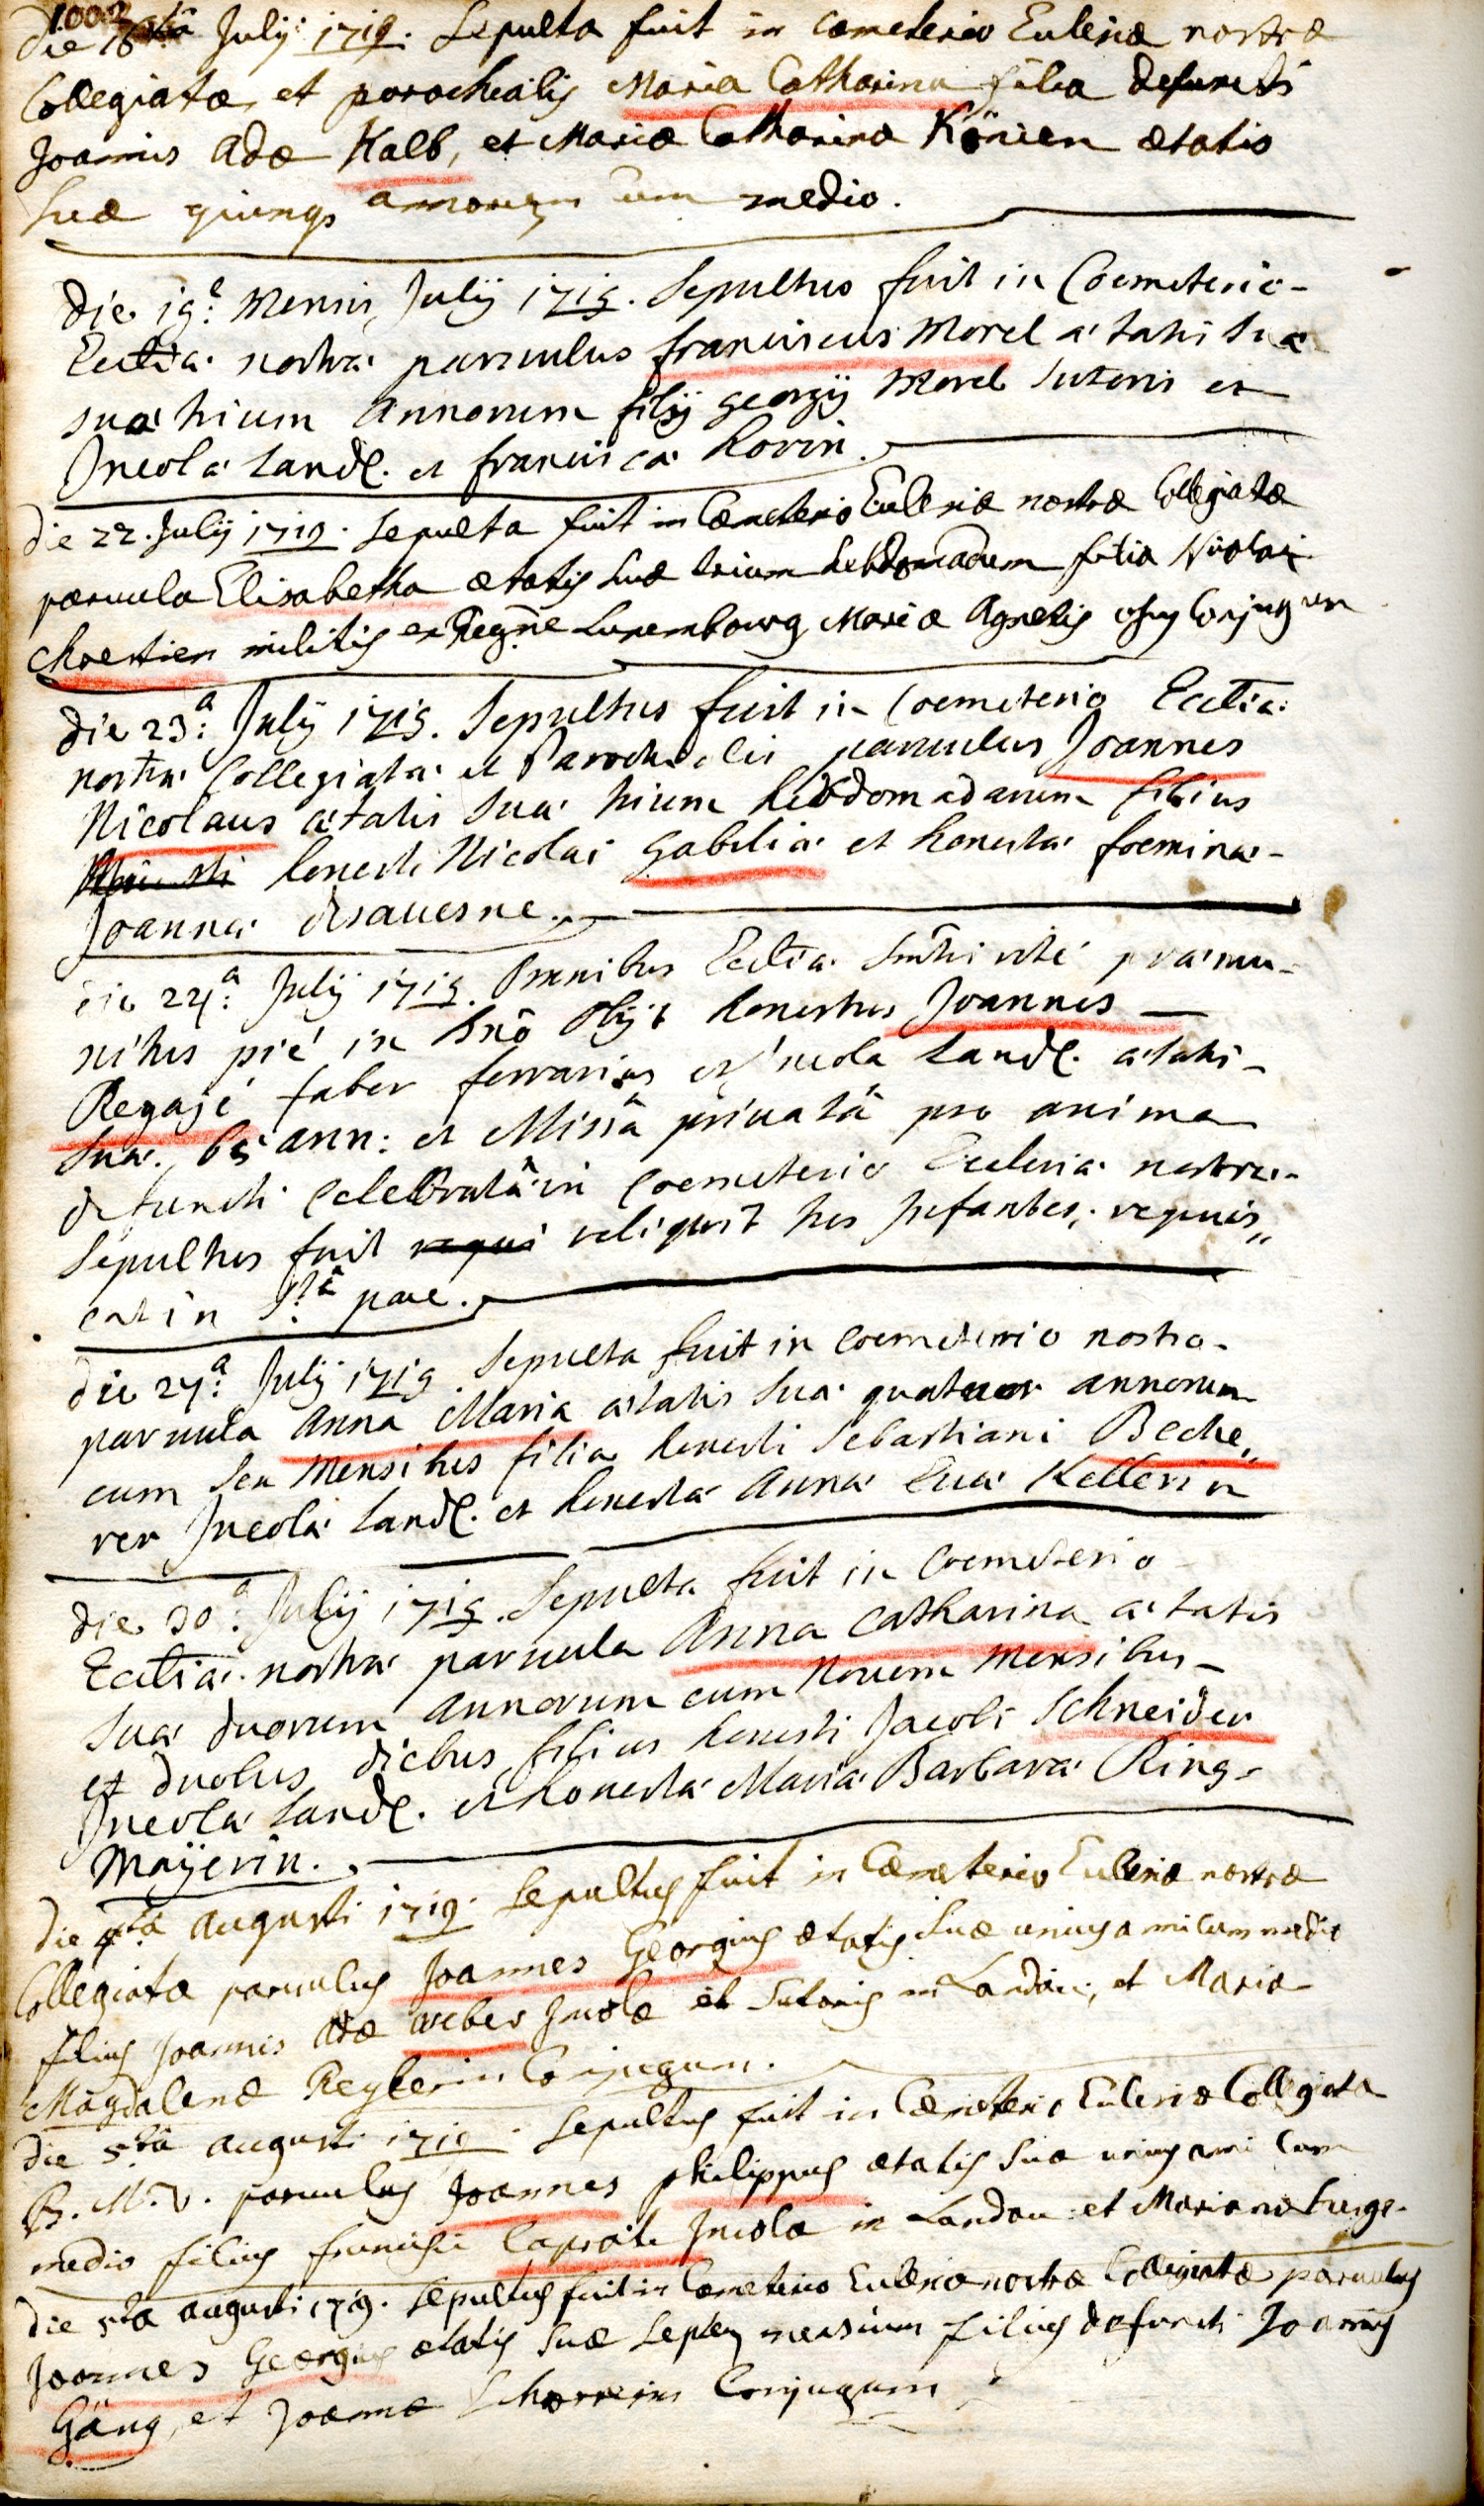 1002
die 16ta July 1719. Sepulta fuit in cœmeterio Ecclesiæ nostræ
Collegiatæ, et parochialis Maria Catharina filia defuncti
Joannis Adæ Kalb, et Mariæ Catharinæ Könien ætatis
suæ quinqs annorum cum medio.
die 19a: Mensis July 1719. Sepultus fuit in Coemeterio-
Ecclia nostra parvulus franciscus Morel ætatis sua
sua trium annorum filÿ georgÿ Morel Sutoris et
Incola Land. et francisca
die 22. July 1719. Sepulta fuit in Cœmeterio Ecclesiæ nostræ Collegiatæ
parvula Elisabetha ætatis suæ trium hebdomadum filia Nicolai
Chrestien militis ex Regne Luxembourg Mariæ Agnetis Conjugum
die 23a: July 1719. Sepultus fuit in Coemeterio Ecclia
nostra Collegiata et Parochialis parvulus Joannes
Nicolaus ætatis sua trium hebdomadarum filius
honesti Nicolai gabelia et honesta foemina-
Joanna desauesne.
die 24a: July 1719. Omnibus Ecclia rité præmu-
nitus pié in Dno obÿt honestus Joannes
Regajé faber ferrarius et incola Land. ætatis-
sua 65 ann: et Missâ privatâ pro anima
defuncti celebratâ in Coemeterio Ecclesia nostra-
Sepultus fuit reliquit tres Infantes, requies„
cat in Sta pace.
die 27a: July 1719 Sepulta fuit in coemeterio nostro-
parvula Anna Maria ætatis sua quatuor annorum
cum sex Mensibus filia honesti Sebastiani Beche„
rer Incola Land. et honesta Anna Eua Kellerin
die 30a: July 1719. Sepulta fuit in Coemeterio
Ecclia nostra parvula Anna Catharina ætatis
sua duorum annorum cum Novem Mensibus-
et duobus diebus, filius honesti Jacobi Schneider
Incola Land. et honesta Maria Barbara Ring-
Maÿerin.
die 4ta augusti 1719. Sepultus fuit in Cœmeterio Ecclesiæ nostræ
Collegiatæ parvulus Joannes Georgius ætatis suæ unius anni cum medio
filius Joannis Adæ Weber Incolæ et Sutoris in Landau, et Mariæ
Magdalenæ Reyterin Conjugum.
die 5ta augusti 1719. Sepultus fuit in Cœmeterio Ecclesiæ Collegiata
B. M. V. parvulus Joannes philippus ætatis suæ unius anni cum
medio filius francisci Incolæ in Landau et Mariannæ
die 5ta augusti 1719. Sepultus fuit in Cœmeterio Ecclesiæ nostræ Collegiatæ parvulus
Joannes Georgius ætatis suæ septem mensium filius defuncti Joannis
Gäng, et Joannæ Conjugum